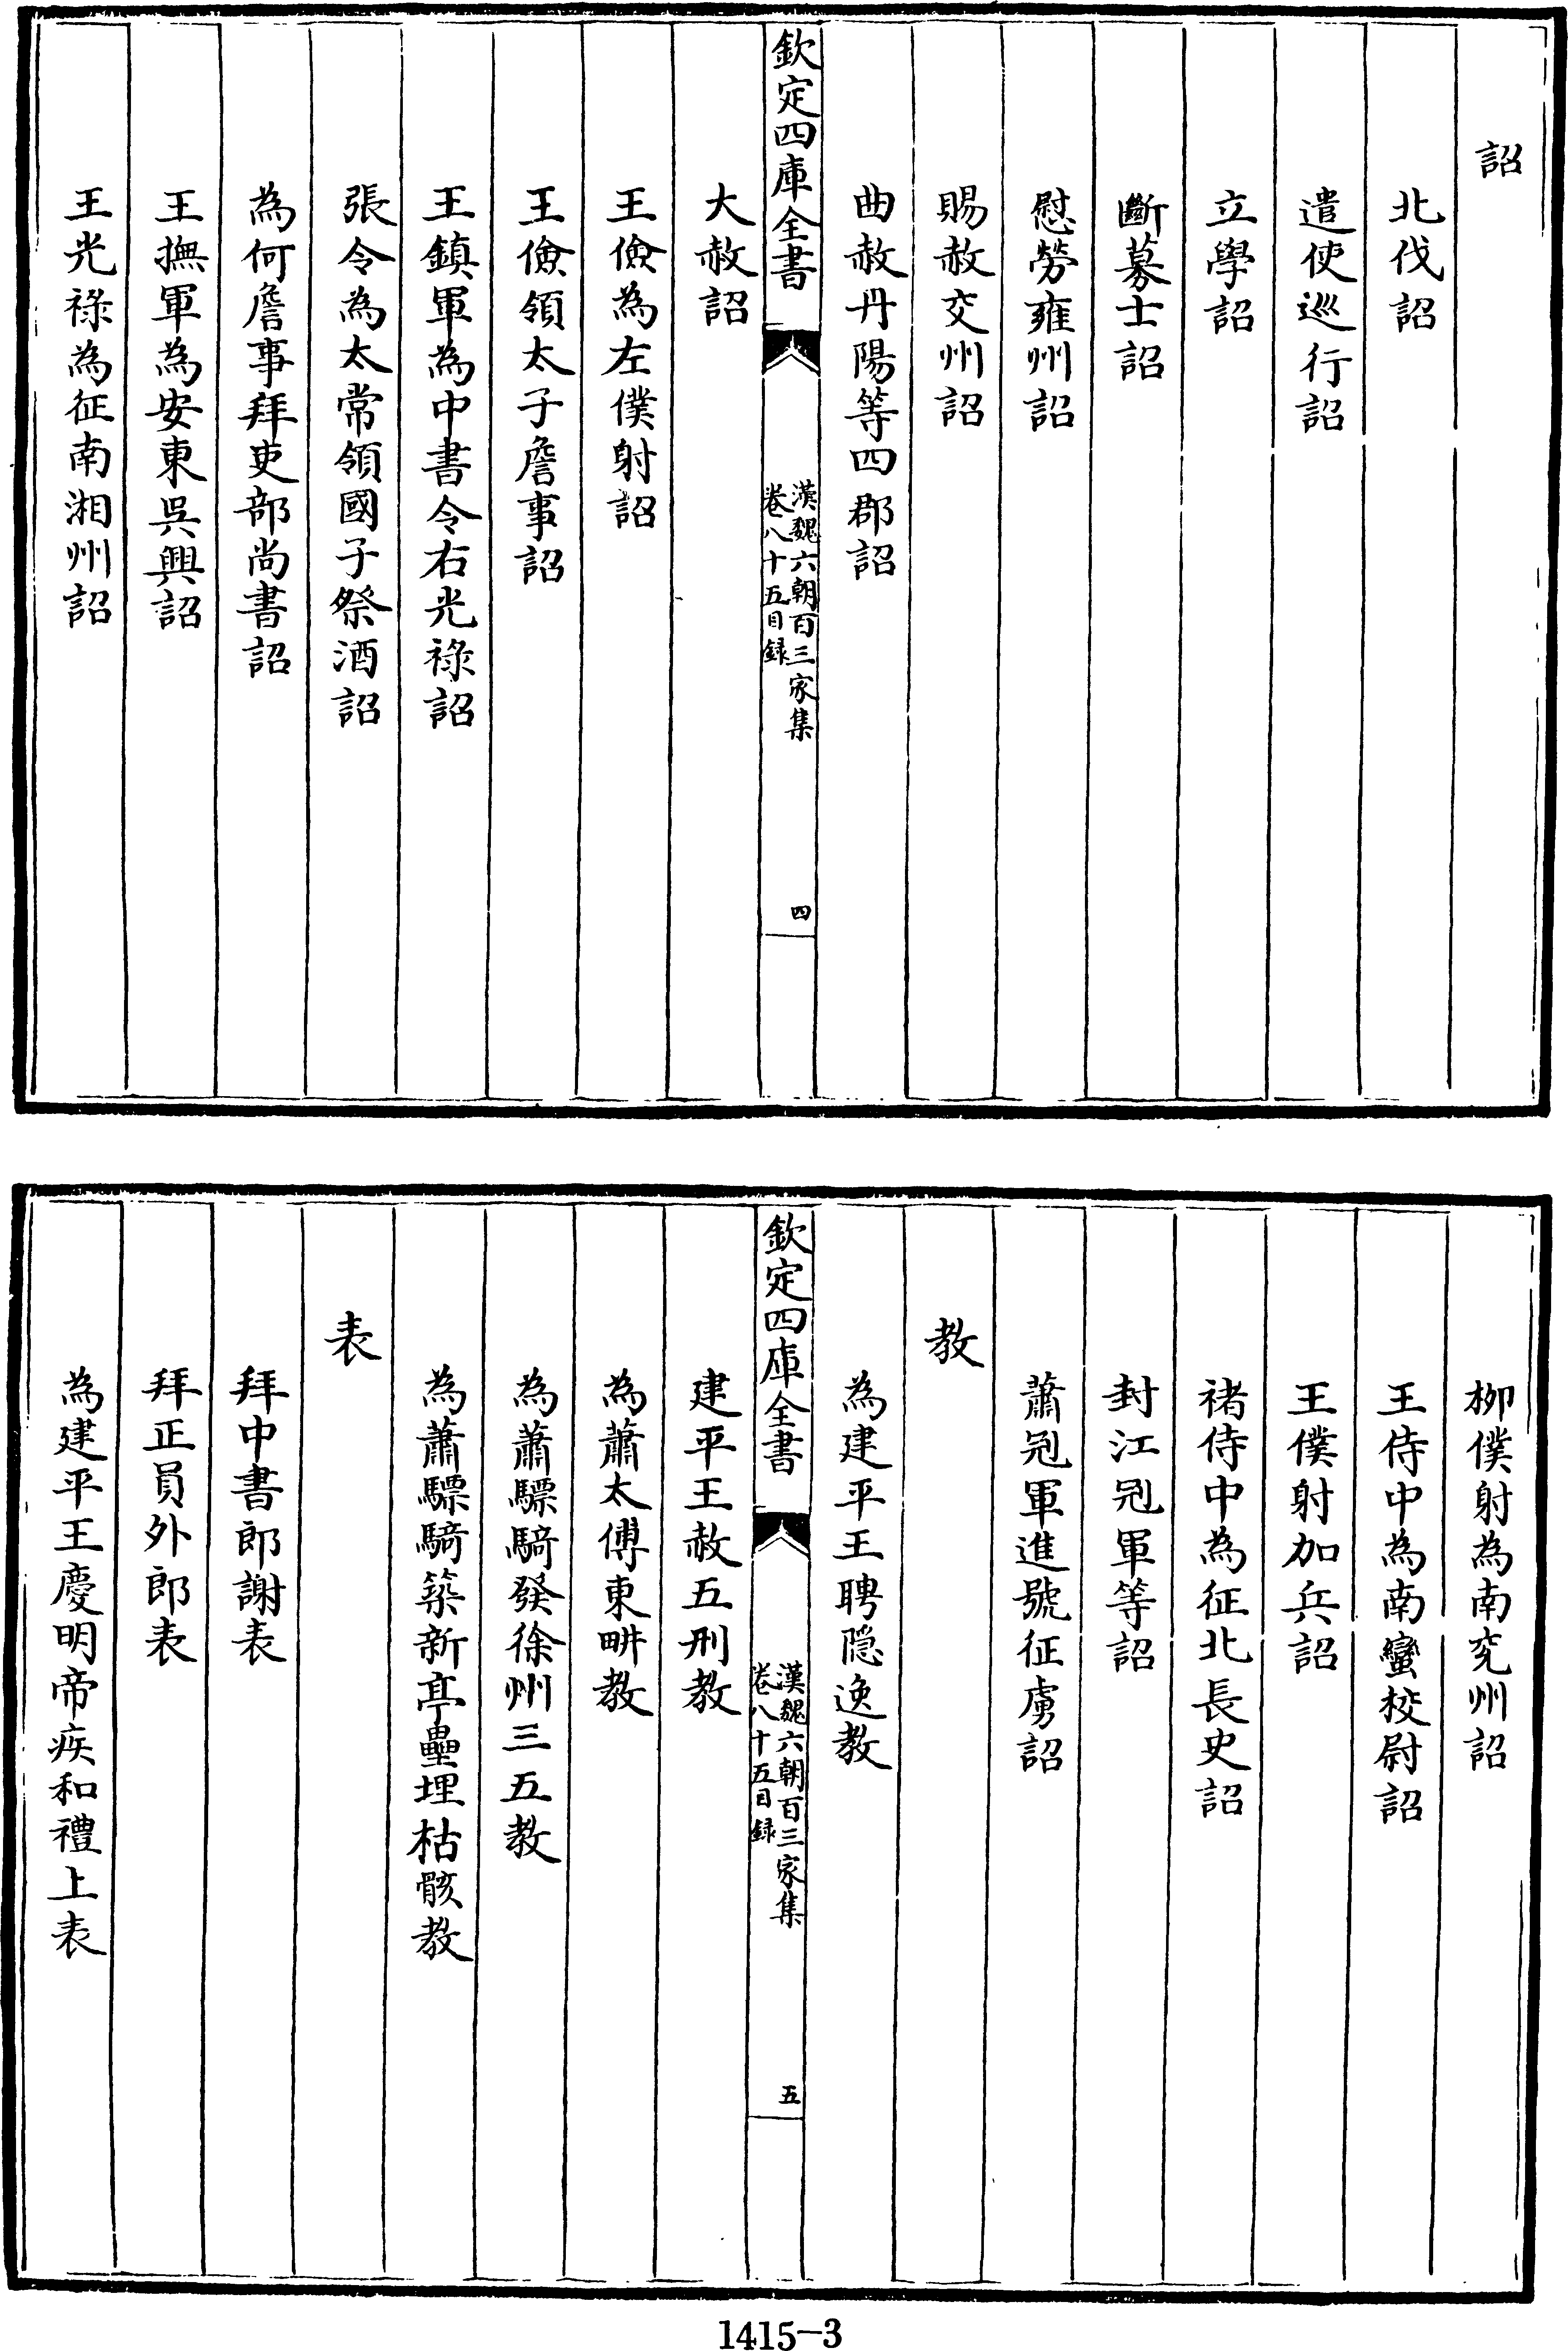 詔
北伐詔
遣使巡行詔
立學詔
斷募士詔
慰勞雍州詔
賜赦交州詔
曲赦丹陽等四郡詔
欽定四庫全書
漢魏六朝百三家集
卷八十五目録
四
大赦詔
王儉為左僕射詔
王儉領太子詹事詔
王鎮軍為中書令右光祿詔
張令為太常領國子祭酒詔
為何詹事拜吏部尚書詔
王撫軍為安東吳興詔
王光祿為征南湘州詔
柳僕射為南兖州詔
王侍中為南蠻校尉詔
王僕射加兵詔
褚侍中為征北長史詔
封江冠軍等詔
蕭冠軍進號征虜詔
教
為建平王聘隠逸教
欽定四庫全書
漢魏六朝百三家集
卷八十五目録
五
建平王赦五刑教
為蕭太傅東畊教
為蕭驃騎發徐州三五教
為蕭驃騎築新亭壘埋枯骸教
表
拜中書郎謝表
拜正員外郎表
為建平王慶明帝疾和禮上表
1415-3